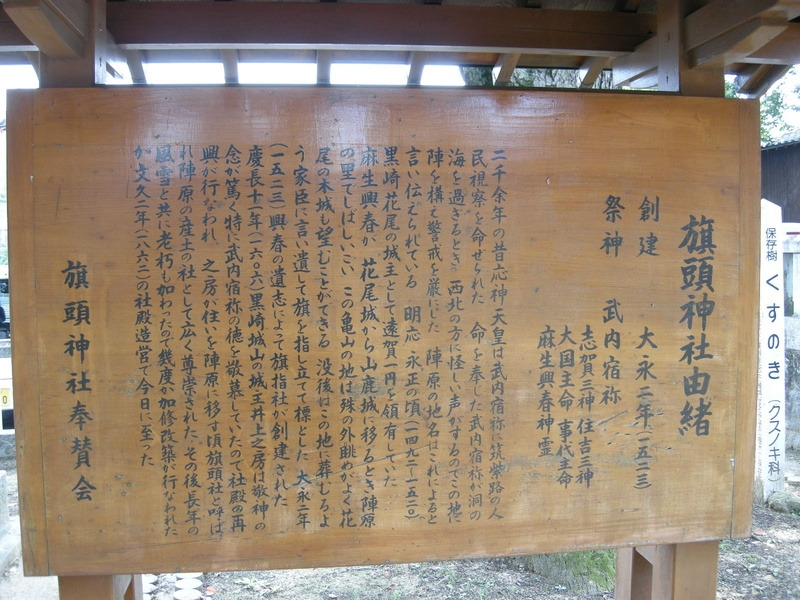 旗頭神社由緒
創建　大永二年(一五二三)
祭神　武内宿祢
志賀三神 住吉三神
大国主命 事代主命
麻生興春神霊
二千余年の昔応神天皇は武内宿祢に筑紫路の人
民視察を命せられた 命を奉した武内宿祢が洞の
海を過ぎるとき 西北の方に怪しい声がするのでこの地に
陣を構え警戒を厳にした 陣原の地名はこれによると
言い伝えられている 明応 永正の頃(一四九二-一五二〇)
黒崎花尾の城主として遠賀一円を領有していた
麻生興春が 花尾城から山鹿城に移るとき陣原
の里でしばしいこい この亀山の地は殊の外眺めがよく花
尾の本城も望むことができる 没後はこの地に葬むるよ
う家臣に言い遺して旗を指し立てて標とした 大永二年
(一五二三)興春の遺志によって旗指社が創建された
慶長十一年(一六〇六)黒崎城山の城主井上之房は敬神の
念が篤く特に武内宿祢の徳を敬慕していたので社殿の再
興が行なわれ 之房が住いを陣原に移す頃旗頭社と呼ば
れ陣原の産土の社として広く尊崇された その後長年の
風雪と共に老朽も加わったので幾度か加修改築が行なわれた
が文久二年(一八六二)の社殿造営で今日に至った
旗頭神社奉賛会
保存樹 くすのき (クスノキ科)